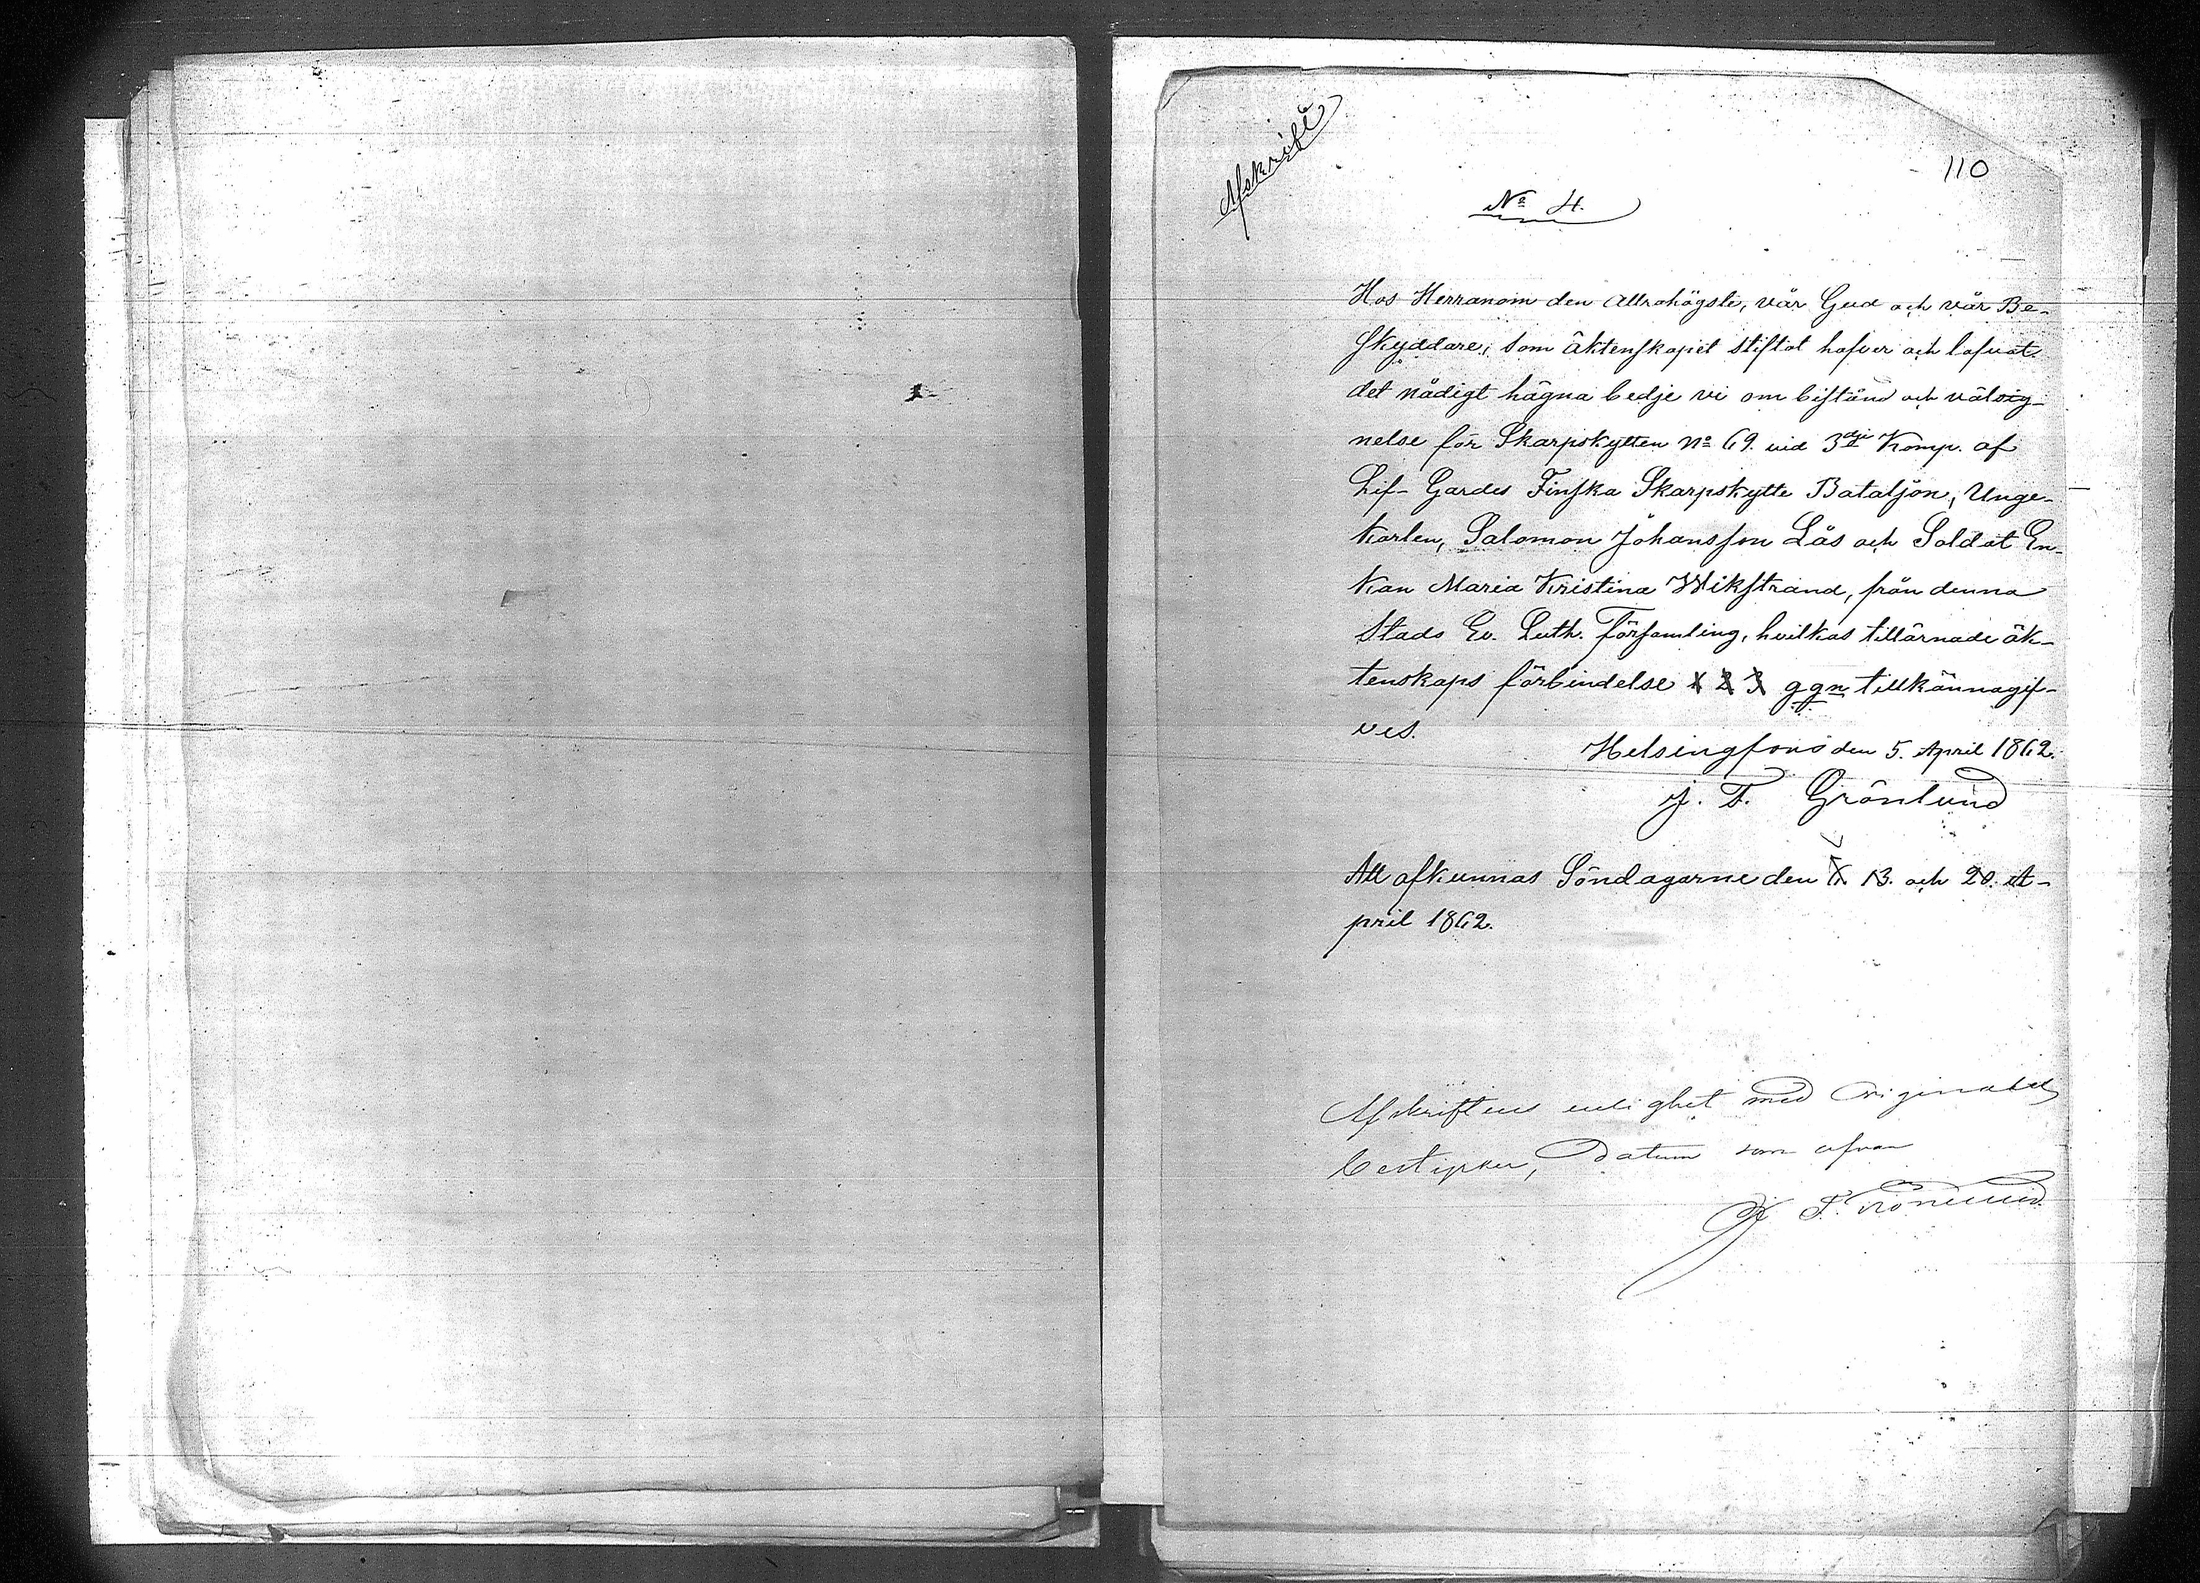 Afskrift
110
No 4.
Hos Herranom den Allrahögste, vår Gud och vår Be-
skyddare, som äktenskapet stiftat hafver och lofvat
det nådigt hägna bedje vi om bistånd och välsig-
nelse för Skarpskytten No 69. vid 3dje Komp. af
Lif-Gardes Finska Skarpskytte Bataljon, Unge-
karlen, Salomon Johansson Lås och Soldat En-
kan Maria Kristina Wikstrand, från denna
Stads Ev. Luth. Församling, hvilkas tillärnade äk-
tenskaps förbindelse 1 2 3 ggn tillkännagif-
ves.
Helsingfors den 5. April 1862.
J. F. Grönlund
Att afkunnas Söndagarne den 13. och 20. A-
pril 1862.
Afskriftens enlighet med Originalet
bestyrker, Datum som ofvan
J F. Grönlund.